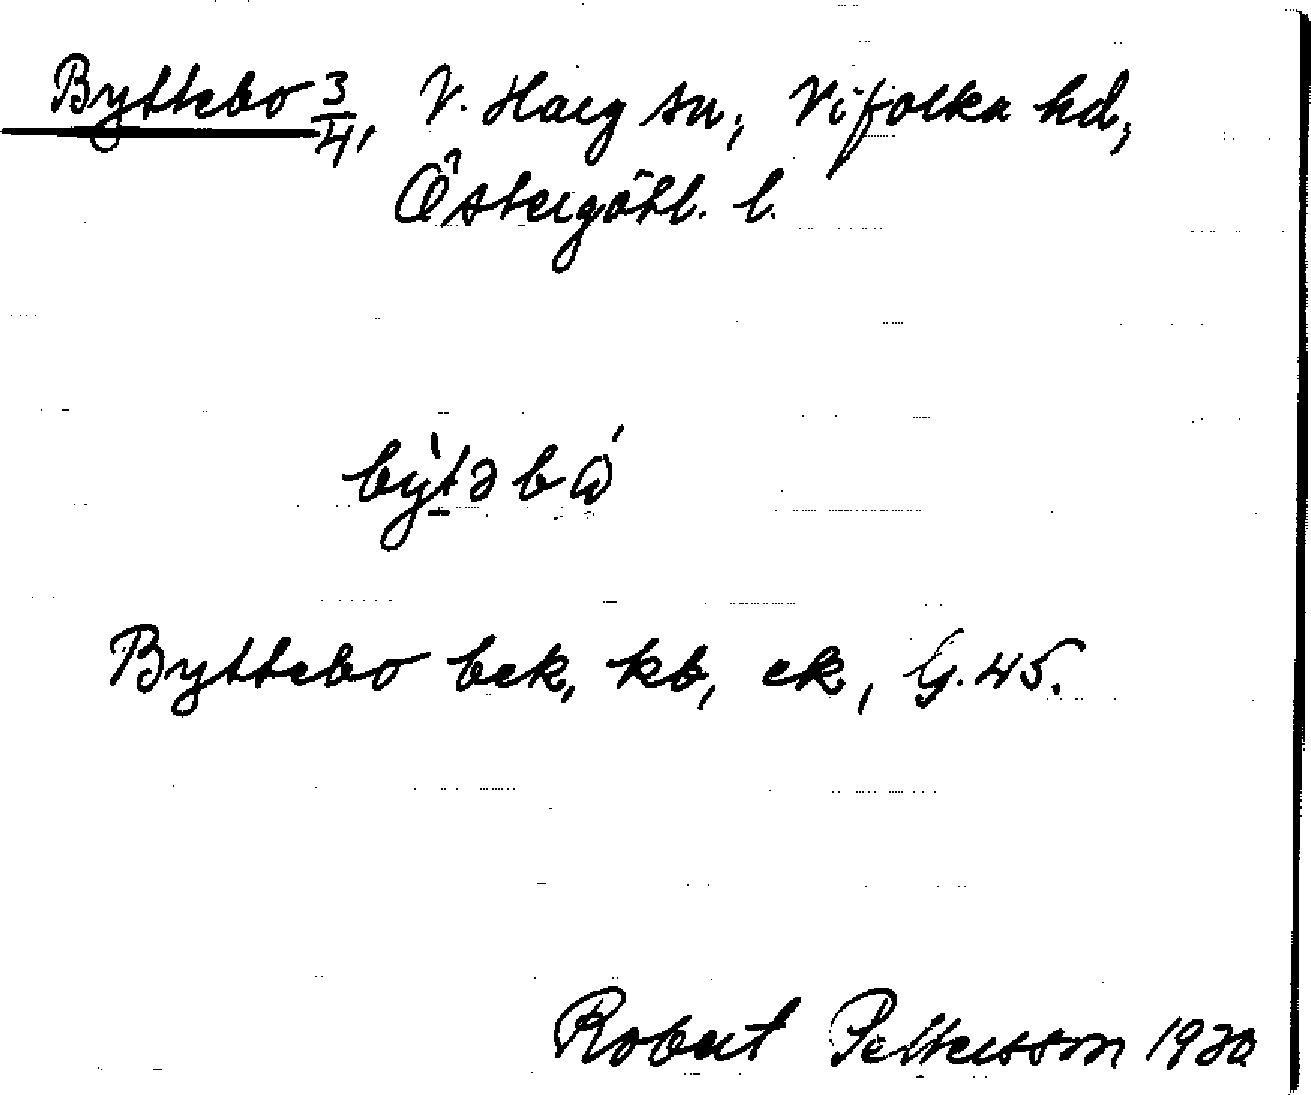 Byttebo 3/4, V. Harg sn, Vifolka hd,
Östergötl. l.
by̆̀təbω´
Byttebo bek, kb, ek, G. 45.
Robert Pettersson 1920